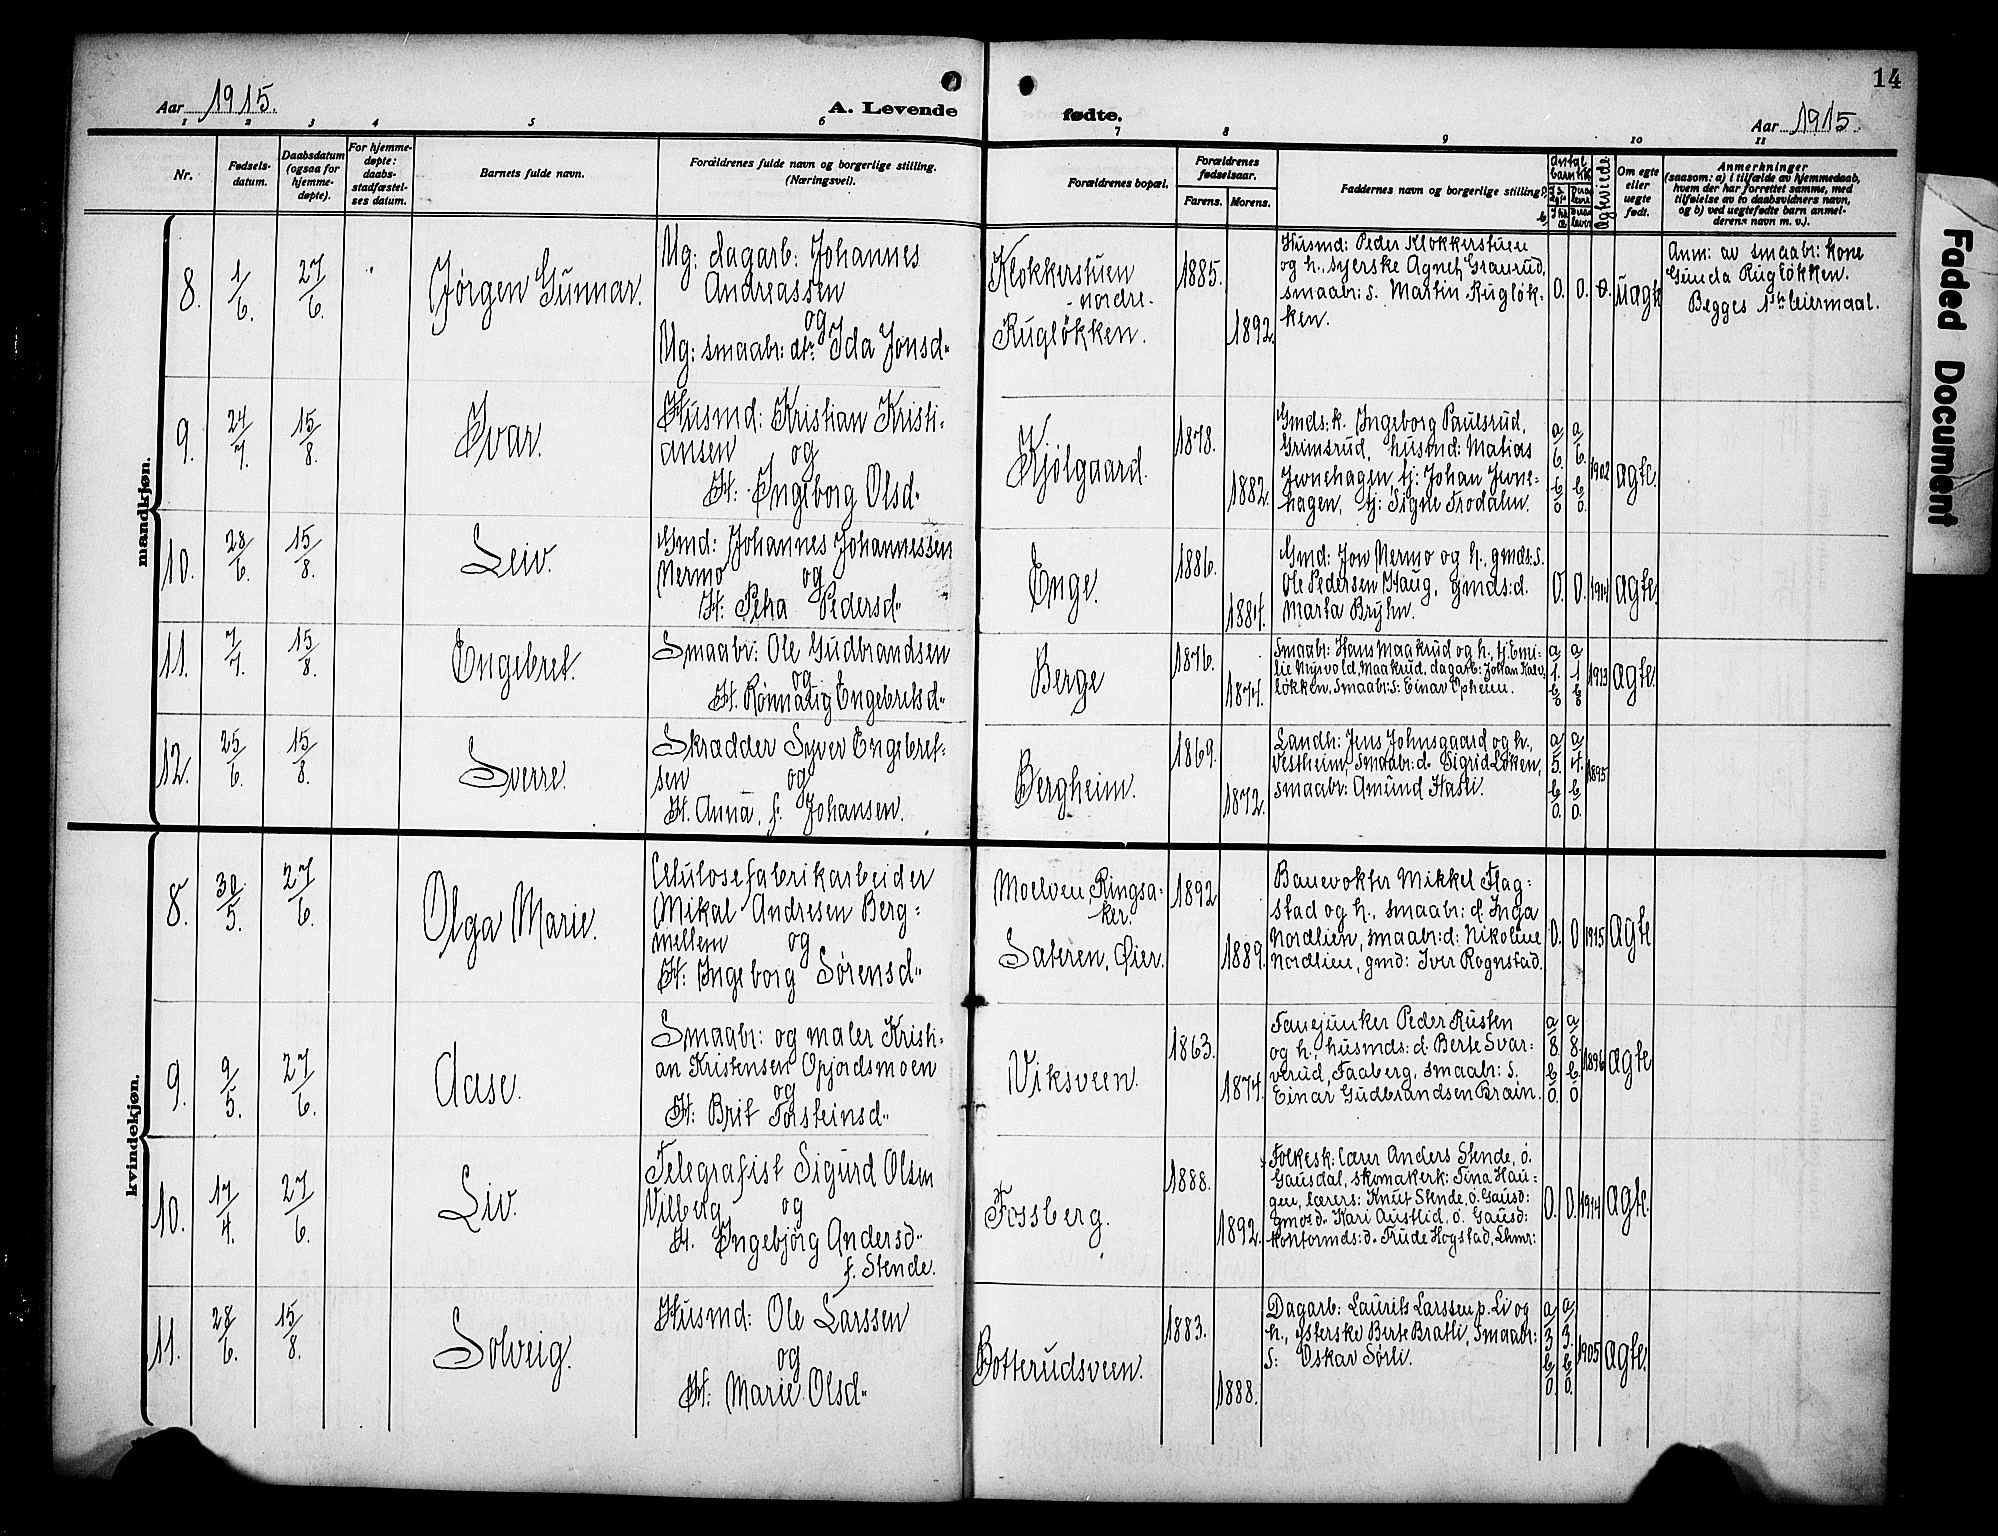 14
Aar 1915.
A. Levende
fødte.
Aar 1915.
1 2 3 4 5 6 7 8 9 10 11
Nr.
Fødsels-
datum.
Daabsdatum
(ogsaa for
hjemme-
døpte).
For hjemme-
døpte:
daabs-
stadfæstel-
ses datum.
Barnets fulde navn.
Forældrenes fulde navn og borgerlige stilling.
(Næringsvei).
Forældrenes bopæl.
Forældrenes
fødselsaar.
Farens.
Morens.
Faddernes navn og borgerlige stilling.
Antal
barn
Ægtviede
Om egte
eller
uegte
født.
Anmerkninger
(saasom: a) i tilfælde av hjemmedaab,
hvem der har forrettet samme, med
tilføielse av to daabsvidners navn,
og b) ved uegtefødte barn anmel-
derens navn m. v.).
mandkjøn.
8.
1/6.
27/6.
Jørgen Gunnar.
Ug: dagarb: Johannes
Andreassen
og
Ug: smaabr: dtr Ida Jonsd"
Klokkerstuen
nordre.
Rugløkken.
1885.
1892.
Husmd: Peder Klokkerstuen
og h., syerske Agnet Graurud,
smaabr: s. Martin Rugløk-
ken.
0. 0. 0.
uagte
Anm: av smaabr: kone
Gunda Rugløkken.
Begges 1ste leiermaal.
9.
24/7.
15/8.
Ivar.
Husmd: Kristian Kristi-
ansen og
H: Ingeborg Olsd"
Kjølgaard.
1878.
1882.
Gmds: k. Ingeborg Paulsrud,
Grimsrud, husmd: Matias
Jevnehagen, tj: Johan Jevne-
hagen, tj: Signe Frodalen.
a/6. b/0
a/6. b/0
1902
agte.
10.
28/6.
15/8.
Leiv.
Gmd: Johannes Johannessen
Mermo og
H: Petra Pedersd"
Enge.
1886.
1884.
Gmd: Jon Mermo og h., gmds: s.
Ole Pedersen Haug, gmds: d.
Marta Bryhn.
0. 0. 1914
agte.
11.
7/7.
15/8.
Engebret.
Smaabr: Ole Gudbrandsen
og
H. Rønnaug Engebretsd"
Berge
1876.
1874.
Smaabr: Hans Maakrud og h., tj: Emi-
lie Nyvold, Maakrud, dagarb: Johan
løkken, Smaabr: s: Einar Opheim.
a/1. b/0
a/1 b/0
1913
agte.
12.
25/6.
15/8.
Sverre.
Skradder Syver Engebret-
sen og
H. Anna, f. Johansen.
Bergheim.
1869.
1872.
Landh: Jens Johnsgaard og h.,
Vestheim, Smaabr: d. Sigrid Løken,
smaabr: Amund Hasli.
a/5. b/0.
a/4. b/0.
1895
kvindekjøn.
8.
30/5.
27/6.
Olga Marie.
Celulosefabrikarbeider
Mikal Andresen Berg-
mellem og
H: Ingeborg Sørensd"
Moelven, Ringsa-
ker.
Sateren, Øier.
1892
1889.
Banevokter Mikkel Flag-
stad og h., smaabr: d. Inga
Nordlien, smaabr: d: Nikoline
Nordlien, gmd: Iver Rognstad.
0. 0 1915
agte
9.
9/5.
27/6.
Aase.
Smaabr: og maler Kristi-
an Kristensen Opjordsmoen
og
H: Brit Torsteinsd"
Viksveen.
1863.
1874.
Fanejunker Peder Rusten
og h., husmds: d. Berte Svar-
verud, Faaberg, smaabr: s.
Einar Gudbrandsen Brain.
a/8. b/0.
a/8. b/0
1896
agte
10.
17/4.
27/6.
Liv.
Telegrafist Sigurd Olsen
Vilberg og
H. Ingebjørg Andersd"
f. Stende.
Fossberg.
1888.
1892.
Folkesk: lærer Anders Stende, ø.
Gausdal, skomakerk: Tina Hau-
gen, lærers: Knut Stende, ø. Gausd:
gmds d. Kari Austlid, ø. Gausd:
kontormds: d. Trude Hogstad, Lhmr:
0. 0. 1914
agte.
11.
28/6.
15/8.
Solveig.
Husmd: Ole Larssen
og
H: Marie Olsd"
Botterudsveen.
1883.
1888.
Dagarb: Laurits Larssen p. Li og
h., ysterske Berte Bratli, Smaabr:
s: Oskar Sørli.
a/3 b/0.
a/3. b/0.
1905
agte.
Faded Document